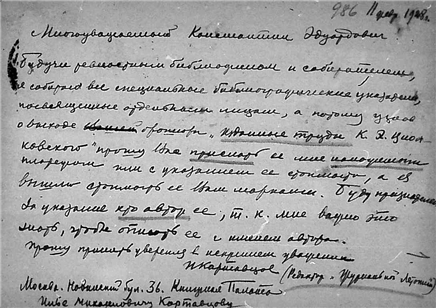 986 11 февр. 1928 г.
Многоуважаемый Константин Эдуардович
Будучи ревностным библиофилом и собирателем,
я собираю все специальные библиографические указатели,
посвященные отдельным лицам, а потому узнав
о выходе брошюры, изданные труды К. Э. Циол-
ковского" прошу Вас прислать ее мне наложенным
платежом или с указанием ее стоимости, а я
вышлю стоимость ее Вам марками. Буду признателен
за указание кто автор ее, т. к. мне важно это
знать, чтобы описать ее с именем автора.
Прошу принять уверения в искреннем уважении
Н Картавцов (Редактор "Журнальной Летописи")
Москва. Новинский бул. 36. Книжная Палата
Михайловичу Картавцову